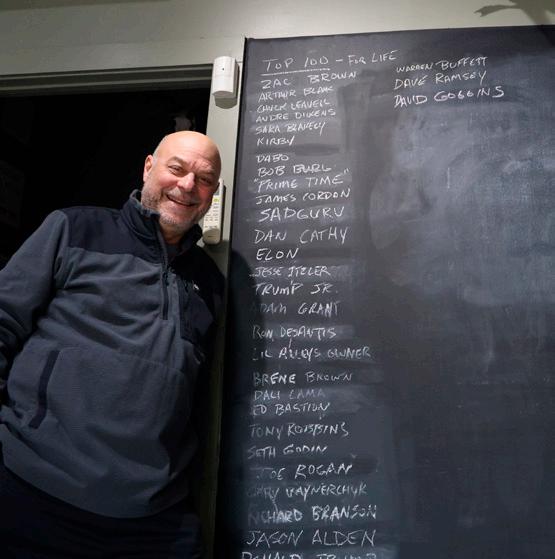 TOP 100 - FOR LIFE
ZAC BROWN
ARTHUR BLANK
CHUCK LEAVELL
ANDRE DICKENS
SARA BLAKELY
KIRBY
DABO
BOB BURG
"PRIME TIME"
JAMES CORDON
SADGURU
DAN CATHY
ELON
JESSE ITZLER
TRUMP JR.
ADAM GRANT
RON DESANTIS
LIL OWNER
BRENE BROWN
DALI LAMA
ED BASTION
TONY ROBBINS
SETH GODIN
JOE ROGAN
GARY VAYNERCHUK
RICHARD BRANSON
JASON ALDEN
DONALD TRUMP
WARREN BUFFETT
DAVE RAMSEY
DAVID GOGGINS